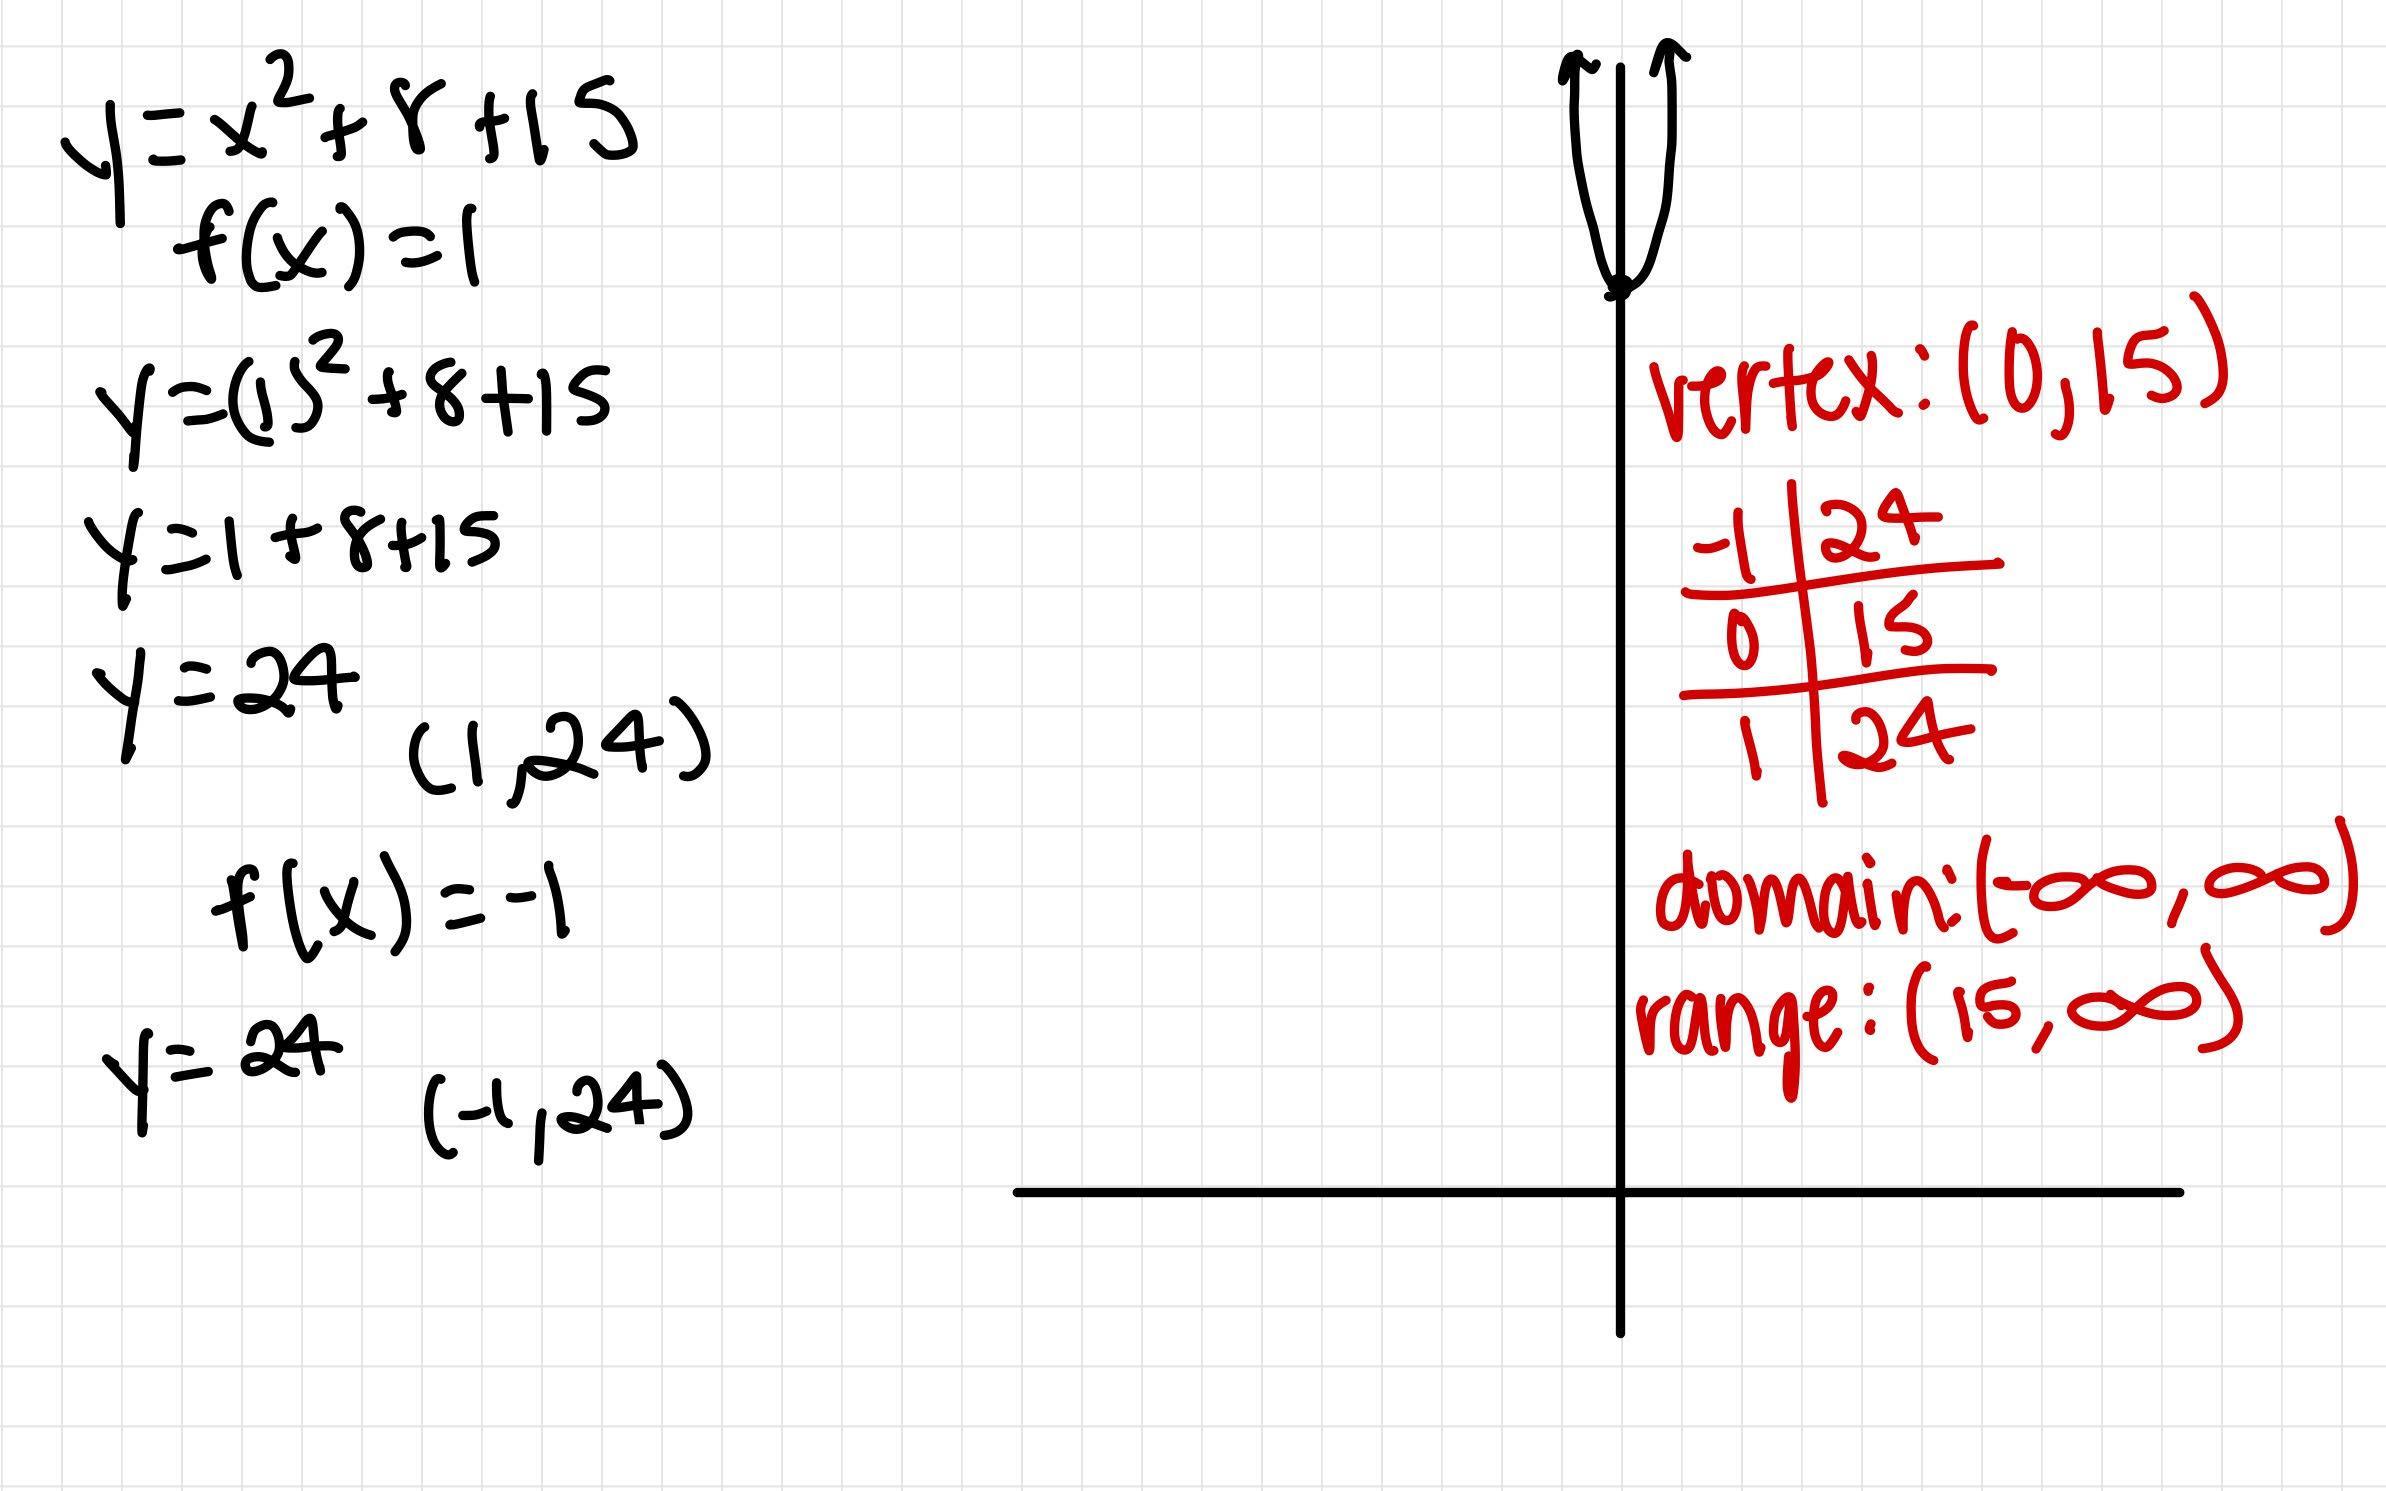 y = x² + 8 + 15
f(x) = 1
y = (1)² + 8 + 15
y = 1 + 8 + 15
y = 24
(1, 24)
f(x) = -1
y = 24
(-1, 24)
vertex: (0, 15)
-1 | 24
0 | 15
1 | 24
domain: (-∞, ∞)
range: (15, ∞)